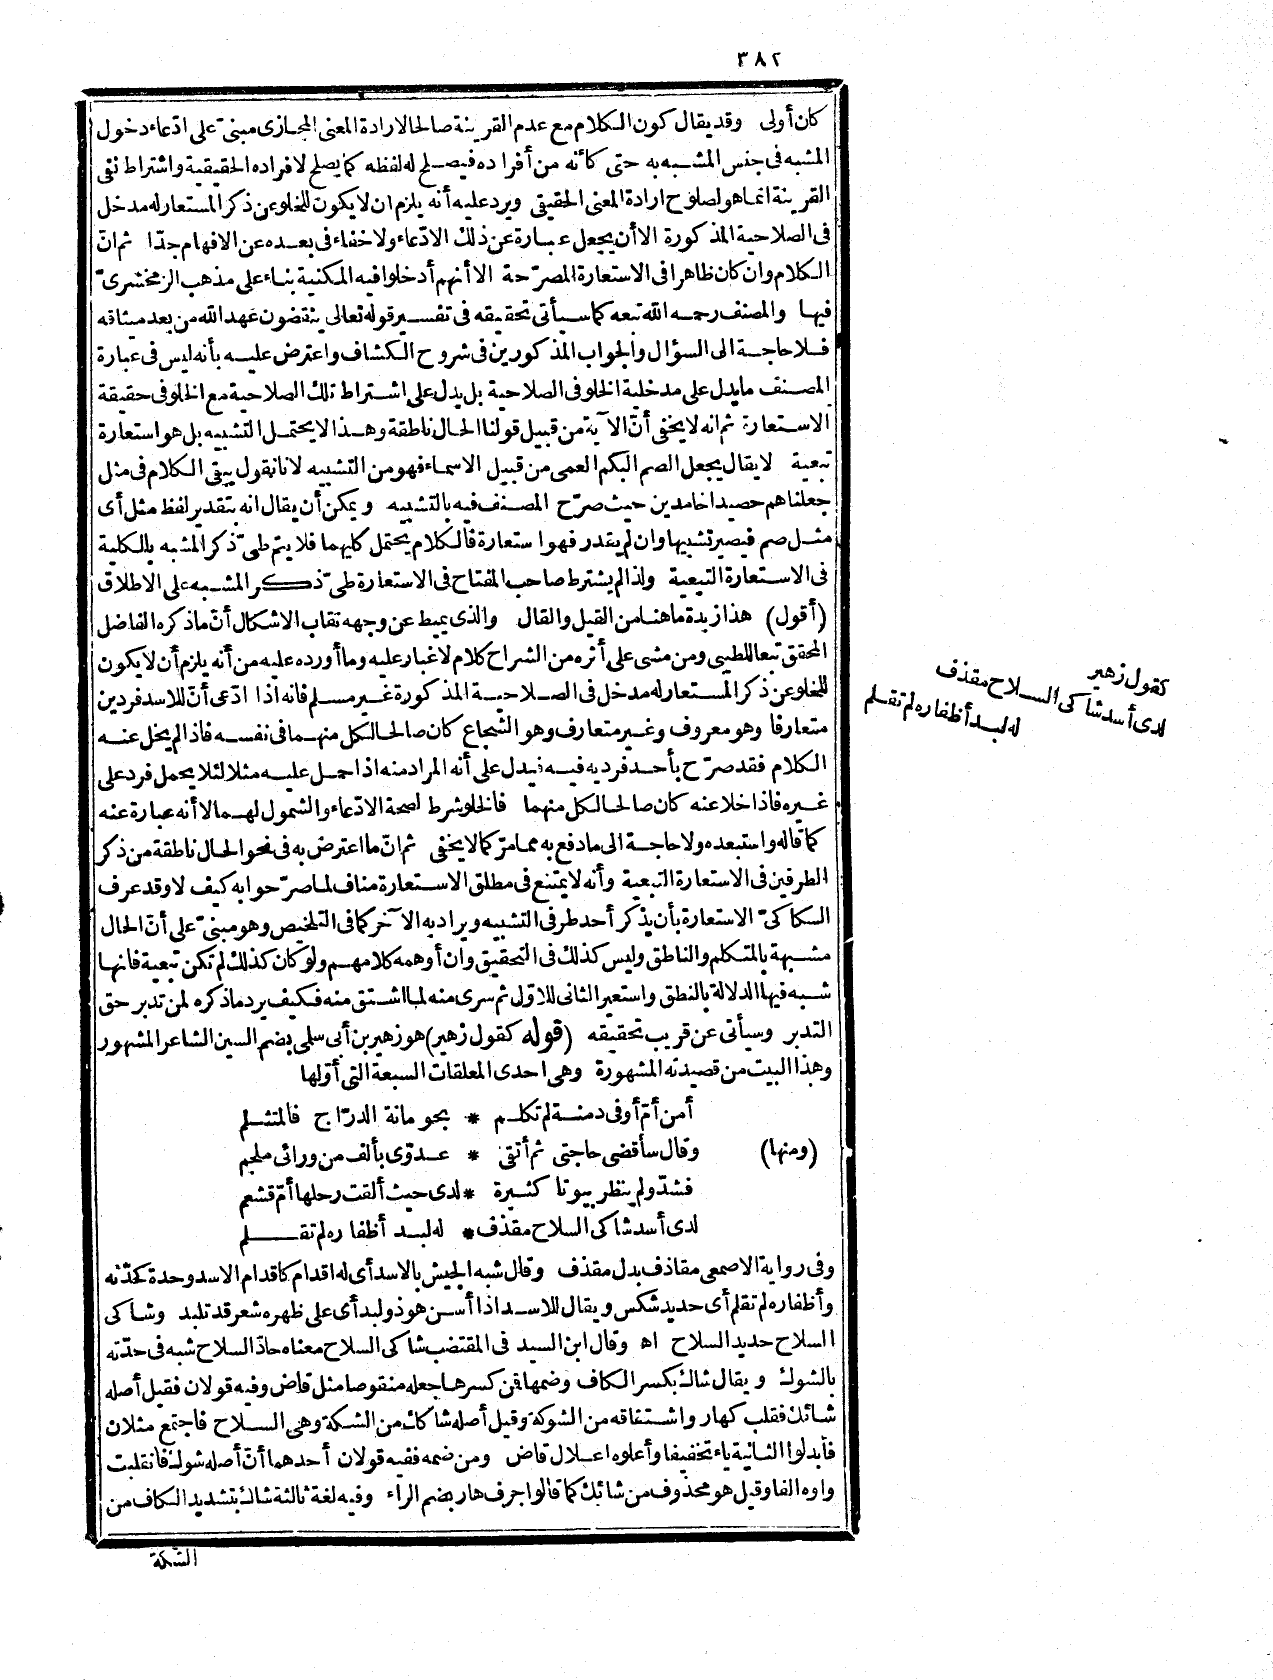 ٣٨٢
كان أولى وقد يقال كون الكلام مع عدم القرينة صالحا لارادة المعنى المجازى مبنىّ على ادّعاء دخول
المشبه فى جنس المشبه به حتى كأنه من أفراده فيصلح له لفظه كما يصلح لافراده الحقيقية واشتراط نفى
القرينة انما هو لصلوح ارادة المعنى الحقيقى ويرد عليه أنه يلزم ان لا يكون للخلو عن ذكر المستعار له مدخل
فى الصلاحية المذكورة الا أن يجعل عبارة عن ذلك الادّعاء ولا خفاء فى بعده عن الافهام جدّا ثم انّ
الكلام وان كان ظاهرا فى الاستعارة المصرّحة الا أنهم أدخلوا فيه المكنية بناء على مذهب الزمخشرىّ
فيها والمصنف رحمه الله تبعه كما سيأتى تحقيقه فى تفسير قوله تعالى ينقضون عهد الله من بعد ميثاقه
فلا حاجة الى السؤال والجواب المذكورين فى شروح الكشاف واعترض عليه بأنه ليس فى عبارة
المصنف ما يدل على مدخلية الخلو فى الصلاحية بل يدل على اشتراط تلك الصلاحية مع الخلو فى حقيقة
الاستعارة ثم انه لا يخفى أنّ الآية من قبيل قولنا الحال ناطقة وهذا لا يحتمل التشبيه بل هو استعارة
تبعية لا يقال يجعل الصم البكم العمى من قبيل الاسماء فهو من التشبيه لانا نقول يبقى الكلام فى مثل
جعلناهم حصيدا خامدين حيث صرّح المصنف فيه بالتشبيه ويمكن أن يقال انه بتقدير لفظ مثل أى
مثل صم فيصير تشبيها وان لم يقدر فهو استعارة فالكلام يحتمل كليهما فلا يتم طىّ ذكر المشبه بالكلية
فى الاستعارة التبعية ولذا لم يشترط صاحب المفتاح فى الاستعارة طىّ ذكر المشبه على الاطلاق
(أقول) هذا زبدة ما هنا من القيل والقال والذى يميط عن وجهه نقاب الاشكال أنّ ما ذكره الفاضل
المحقق تبعا للطيبى ومن مشى على أثره من الشراح كلام لا غبار عليه وما أورده عليه من أنه يلزم أن لا يكون
للخلو عن ذكر المستعار له مدخل فى الصلاحية المذكورة غير مسلم فانه اذا ادّعى أنّ للاسد فردين
متعارفا وهو معروف وغير متعارف وهو الشجاع كان صالحا لكل منهما فى نفسه فاذا لم يخل عنه
الكلام فقد صرّح بأحد فرديه فيه فيدل على أنه المراد منه اذا حمل عليه مثلا لئلا يحمل فرد على
غيره فاذا خلا عنه كان صالحا لكل منهما فالخلو شرط لصحة الادّعاء والشمول لهما لا أنه عبارة عنه
كما قاله واستبعده ولا حاجة الى ما دفع به ممامرّ كما لا يخفى ثم انّ ما اعترض به فى نحو الحال ناطقة من ذكر
الطرفين فى الاستعارة التبعية وأنه لا يمتنع فى مطلق الاستعارة مناف لما صرّحوا به كيف لا وقد عرف
السكاكىّ الاستعارة بأن يذكر أحد طرفى التشبيه ويراد به الآخر كما فى التلخيص وهو مبنىّ على أنّ الحال
مشبهة بالمتكلم والناطق وليس كذلك فى التحقيق وان أوهمه كلامهم ولو كان كذلك لم تكن تبعية فانها
شبه فيها الدلالة بالنطق واستعير الثانى للاوّل ثم سرى منه لما اشتق منه فكيف يرد ما ذكره لمن تدبر حق
التدبر وسيأتى عن قريب تحقيقه (قوله كقول زهير) هو زهير بن أبى سلمى بضم السين الشاعر المشهور
وهذا البيت من قصيدته المشهورة وهى احدى المعلقات السبعة التى أوّلها
أمن أمّ أوفى دمنة لم تكلم * بحومانة الدرّاج فالمتثلم
(ومنها) وقال سأقضى حاجتى ثم أتقى * عدوّى بألف من ورائى ملجم
فشدّ ولم ينظر بيوتا كثيرة * لدى حيث ألقت رحلها أمّ قشعم
لدى أسد شاكى السلاح مقذف * له لبد أظفاره لم تقلم
وفى رواية الاصمعى مقاذف بدل مقذف وقال شبه الجيش بالاسد أى له اقدام كاقدام الاسد وحدة كحدّته
وأظفاره لم تقلم أى حديد شكس ويقال للاسد اذا أسن هو ذو لبد أى على ظهره شعر قد تلبد وشاكى
السلاح حديد السلاح اه وقال ابن السيد فى المقتضب شاكى السلاح معناه حادّ السلاح شبه فى حدّته
بالشوك ويقال شاك بكسر الكاف وضمها فمن كسرها جعله منقوصا مثل قاض وفيه قولان فقيل أصله
شائك فقلب كهار واشتقاقه من الشوكة وقيل أصله شاكك من الشكة وهى السلاح فاجتمع مثلان
فأبدلوا الثانية ياء تخفيفا وأعلوه اعلال قاض ومن ضمه ففيه قولان أحدهما أنّ أصله شوك فانقلبت
واوه الفا وقيل هو محذوف من شائك كما قالوا جرف هار بضم الراء وفيه لغة ثالثة شاك بتشديد الكاف من
الشّكة
كقول زهير
لدى أسد شاكى السلاح مقذف
له لبد أظفاره لم تقلم